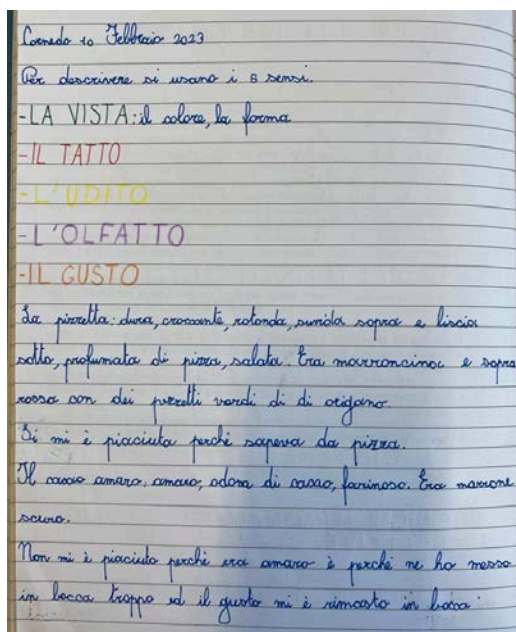 Cornedo 10 Febbraio 2023
Per descrivere si usano i 5 sensi.
-LA VISTA: il colore, la forma
-IL TATTO
-L'UDITO
-L'OLFATTO
-IL GUSTO
La pizzetta: dura, croccante, rotonda, ruvida sopra e liscia
sotto, profumata di pizza, salata. Era marroncina e sopra
rossa con dei pezzetti verdi di di origano.
Si mi è piaciuta perché sapeva da pizza.
Il cacao amaro, amaro, odora di cacao, farinoso. Era marrone
scuro.
Non mi è piaciuto perché era amaro è perché ne ho messo
in bocca troppo ed il gusto mi è rimasto in bocca.